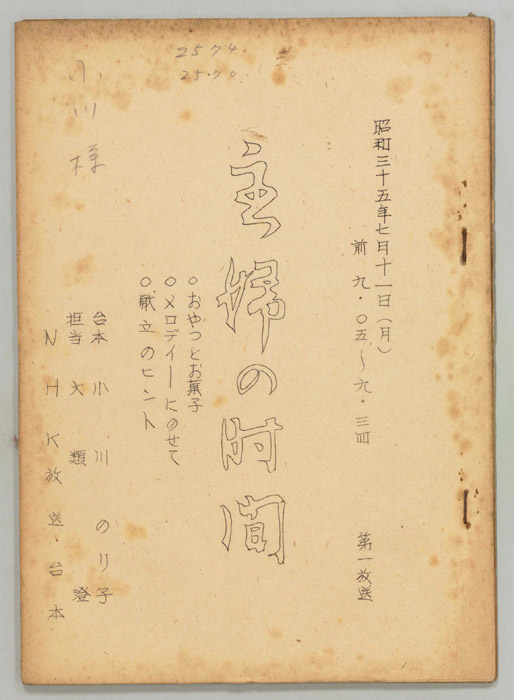 昭和三十五年七月十一日(月)
前 九・〇五~九・三四
第一放送
主婦の时间
○おやつとお菓子
○メロディーにのせて
○献立のヒント
台本 小川のり子
担当 大類 澄
NHK放送台本
小川様
2574
2570